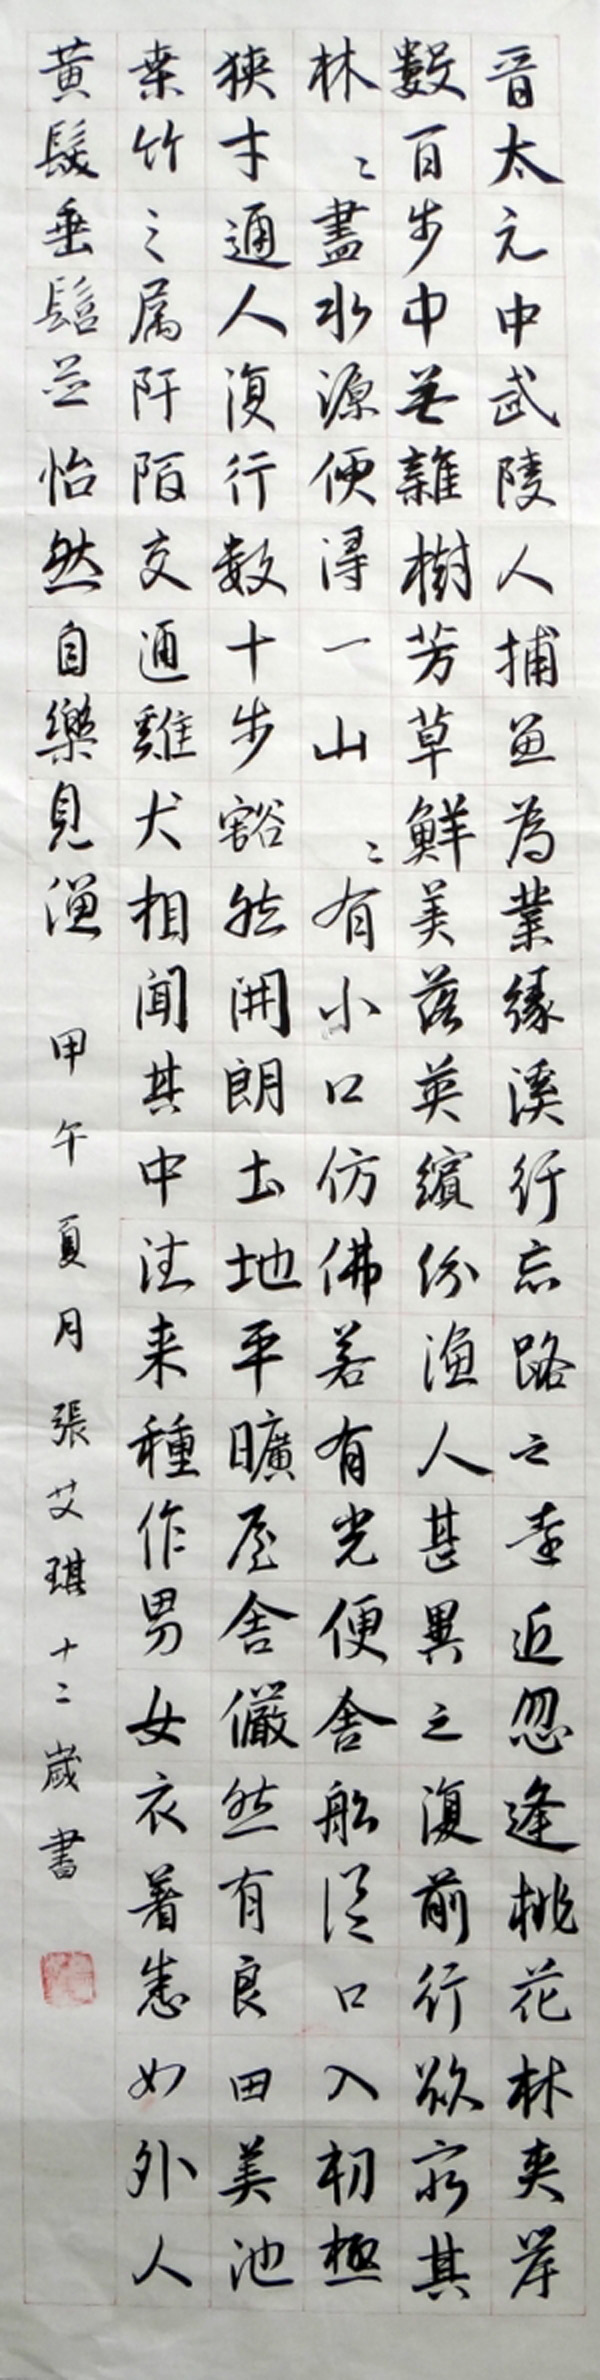 晋太元中武陵人捕魚為業緣溪行忘路之遠近忽逢桃花林夾岸
數百步中無雜樹芳草鮮美落英繽紛漁人甚異之復前行欲窮其
林〻盡水源便得一山〻有小口仿佛若有光便舍船從口入初極
狹才通人復行数十步豁然開朗土地平曠屋舍儼然有良田美池
桑竹之属阡陌交通雞犬相聞其中往来種作男女衣着悉如外人
黃髮垂髫並怡然自樂見漁
甲午夏月張艾琪十二歲書